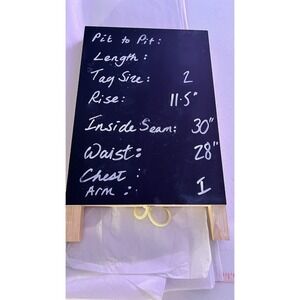 Pit to Pit:
Length:
Tag Size: 2
Rise: 11.5"
Inside Seam: 30"
Waist: 28"
Chest:
Arm: I